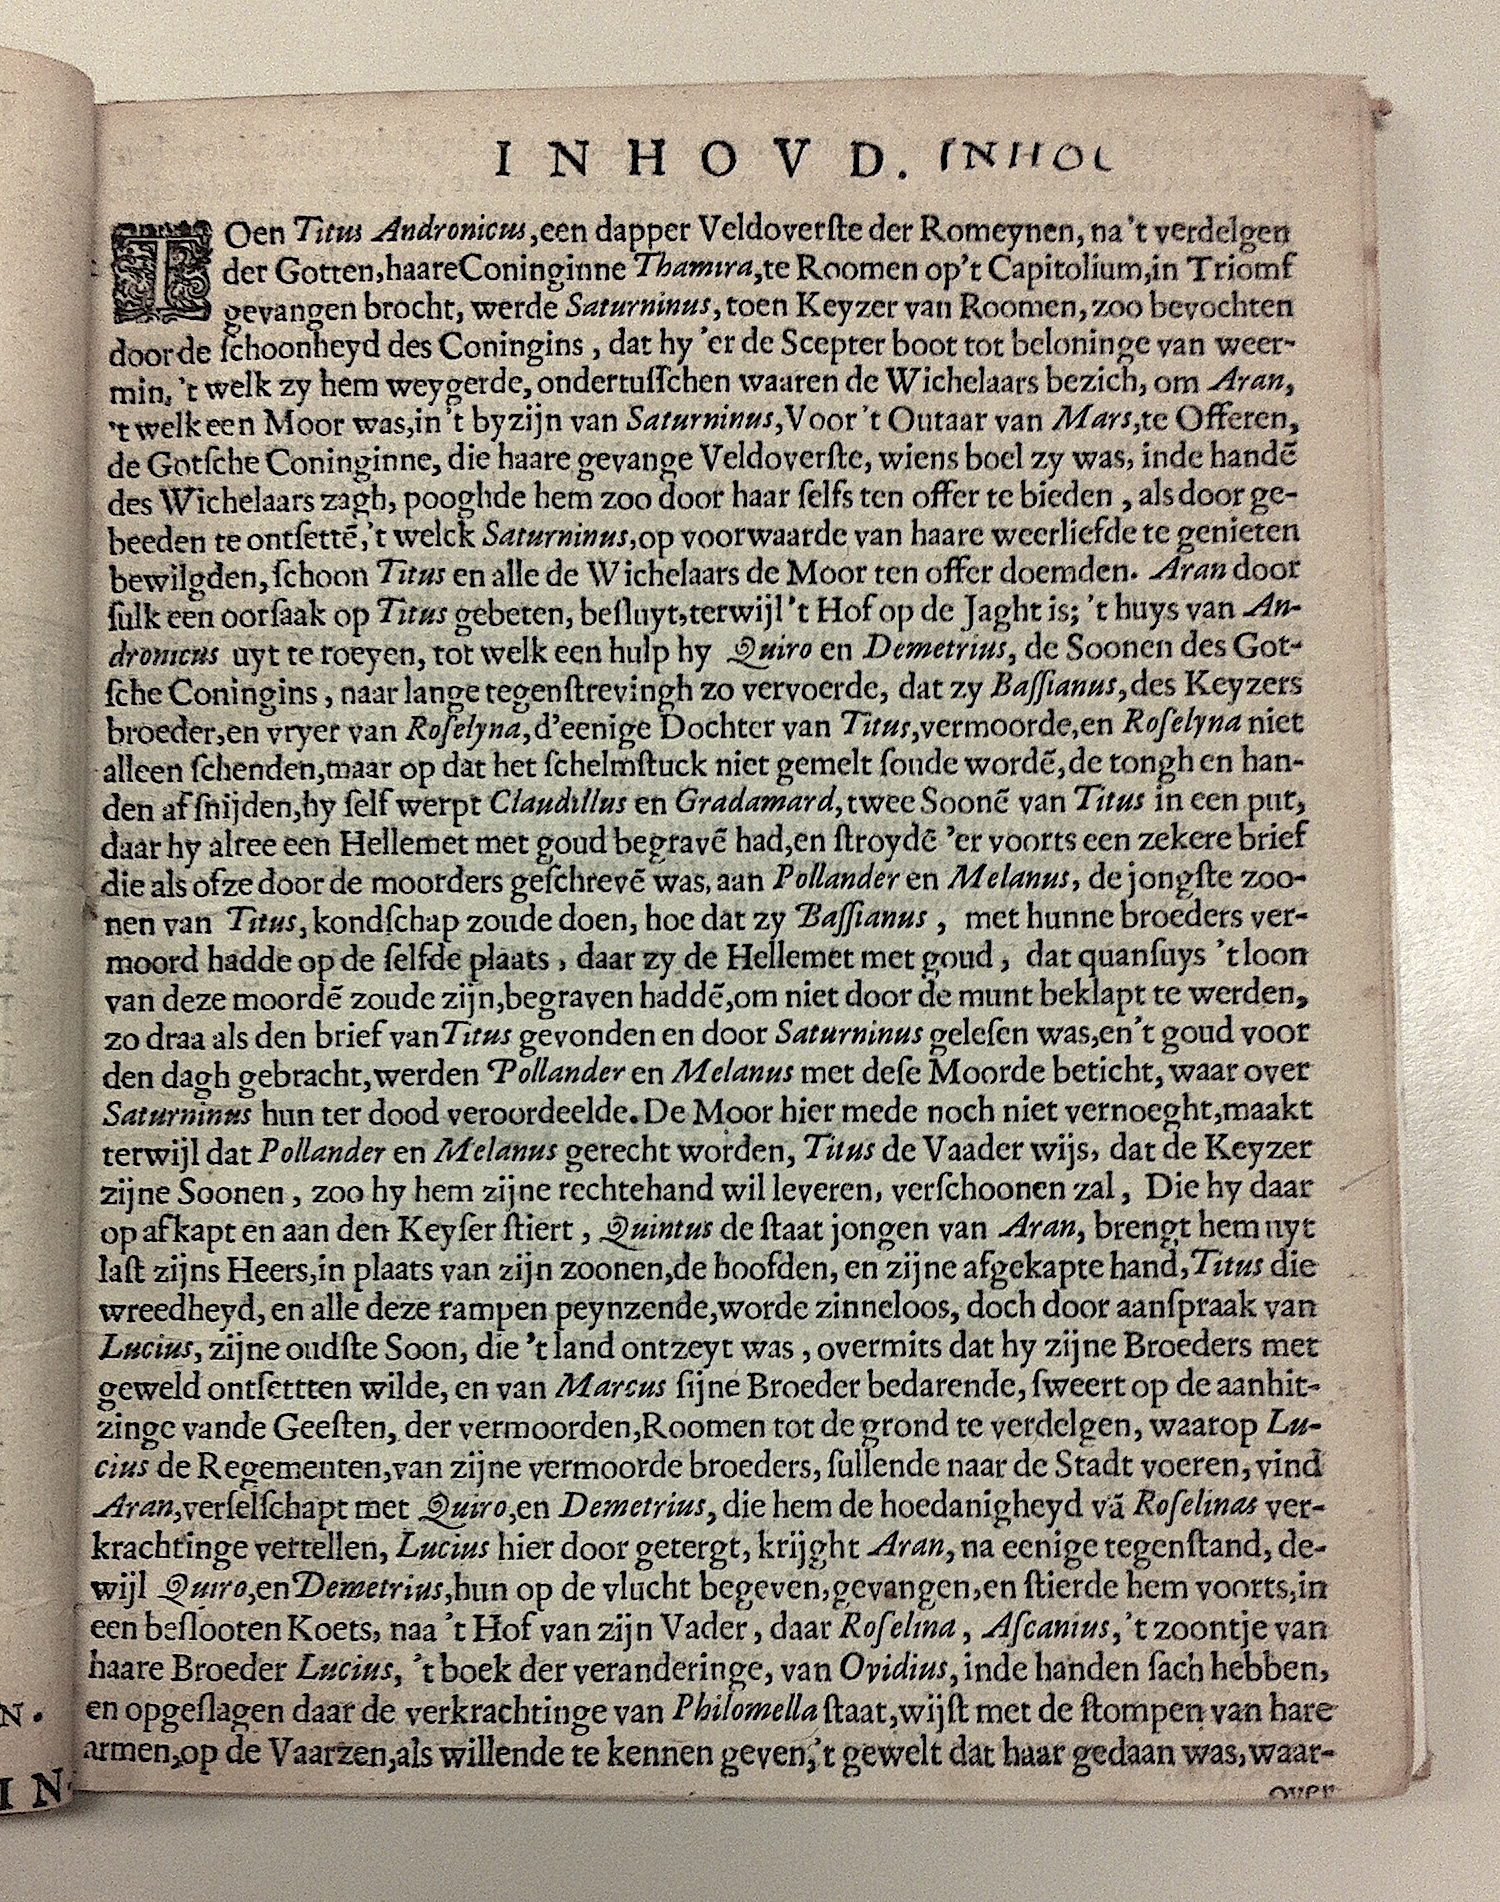 INHOVD. INHOL
TOen Titus Andronicus,een dapper Veldoverſte der Romeynen, na 't verdelgen
der Gotten,haareConinginne Thamira,te Roomen op't Capitolium,in Triomf
gevangen brocht, werde Saturninus, toen Keyzer van Roomen, zoo bevochten
door de ſchoonheyd des Coningins , dat hy 'er de Scepter boot tot beloninge van weer-
min, 't welk zy hem weygerde, ondertuſſchen waaren de Wichelaars bezich, om Aran,
't welk een Moor was,in 't by zijn van Saturninus,Voor 't Outaar van Mars,te Offeren,
de Gotſche Coninginne, die haare gevange Veldoverſte, wiens boel zy was, inde handē
des Wichelaars zagh, pooghde hem zoo door haar ſelfs ten offer te bieden , als door ge-
beeden te ontſettē,'t welck Saturninus,op voorwaarde van haare weerliefde te genieten
bewilgden, ſchoon Titus en alle de Wichelaars de Moor ten offer doemden. Aran door
ſulk een oorſaak op Titus gebeten, beſluyt,terwijl 't Hof op de Jaght is; 't huys van An-
dronicus uyt te roeyen, tot welk een hulp hy Quiro en Demetrius, de Soonen des Got-
ſche Coningins , naar lange tegenſtrevingh zo vervoerde, dat zy Baſſianus,des Keyzers
broeder,en vryer van Roſelyna, d'eenige Dochter van Titus,vermoorde,en Roſelyna niet
alleen ſchenden,maar op dat het ſchelmſtuck niet gemelt ſoude wordē,de tongh en han-
den af ſnijden,hy ſelf werpt Claudillus en Gradamard,twee Soonē van Titus in een put,
daar hy alree een Hellemet met goud begravē had,en ſtroydē 'er voorts een zekere brief
die als ofze door de moorders geſchrevē was, aan Pollander en Melanus, de jongſte zoo-
nen van Titus, kondſchap zoude doen, hoe dat zy Baſſianus , met hunne broeders ver-
moord hadde op de ſelfde plaats , daar zy de Hellemet met goud , dat quanſuys 't loon
van deze moordē zoude zijn,begraven haddē,om niet door de munt beklapt te werden,
zo draa als den brief van Titus gevonden en door Saturninus geleſen was,en 't goud voor
den dagh gebracht,werden Pollander en Melanus met deſe Moorde beticht, waar over
Saturninus hun ter dood veroordeelde. De Moor hier mede noch niet vernoeght,maakt
terwijl dat Pollander en Melanus gerecht worden, Titus de Vaader wijs, dat de Keyzer
zijne Soonen , zoo hy hem zijne rechtehand wil leveren, verſchoonen zal, Die hy daar
op afkapt en aan den Keyſer ſtiert , Quintus de ſtaat jongen van Aran, brengt hem uyt
laſt zijns Heers,in plaats van zijn zoonen,de hoofden, en zijne afgekapte hand, Titus die
wreedheyd, en alle deze rampen peynzende,worde zinneloos, doch door aanſpraak van
Lucius, zijne oudſte Soon, die 't land ontzeyt was , overmits dat hy zijne Broeders met
geweld ontſettten wilde, en van Marcus ſijne Broeder bedarende, ſweert op de aanhit-
zinge vande Geeſten, der vermoorden,Roomen tot de grond te verdelgen, waarop Lu-
cius de Regementen,van zijne vermoorde broeders, ſullende naar de Stadt voeren, vind
Aran,verſelſchapt met Quiro,en Demetrius, die hem de hoedanigheyd vā Roſelinas ver-
krachtinge vertellen, Lucius hier door getergt, krijght Aran, na eenige tegenſtand, de-
wijl Quiro,en Demetrius,hun op de vlucht begeven,gevangen,en ſtierde hem voorts,in
een beſlooten Koets, naa 't Hof van zijn Vader , daar Roſelina , Aſcanius, 't zoontje van
haare Broeder Lucius, 't boek der veranderinge, van Ovidius, inde handen ſach hebben,
en opgeſlagen daar de verkrachtinge van Philomella ſtaat,wijſt met de ſtompen van hare
armen,op de Vaarzen,als willende te kennen geven,'t gewelt dat haar gedaan was, waar-
over
N.
IN